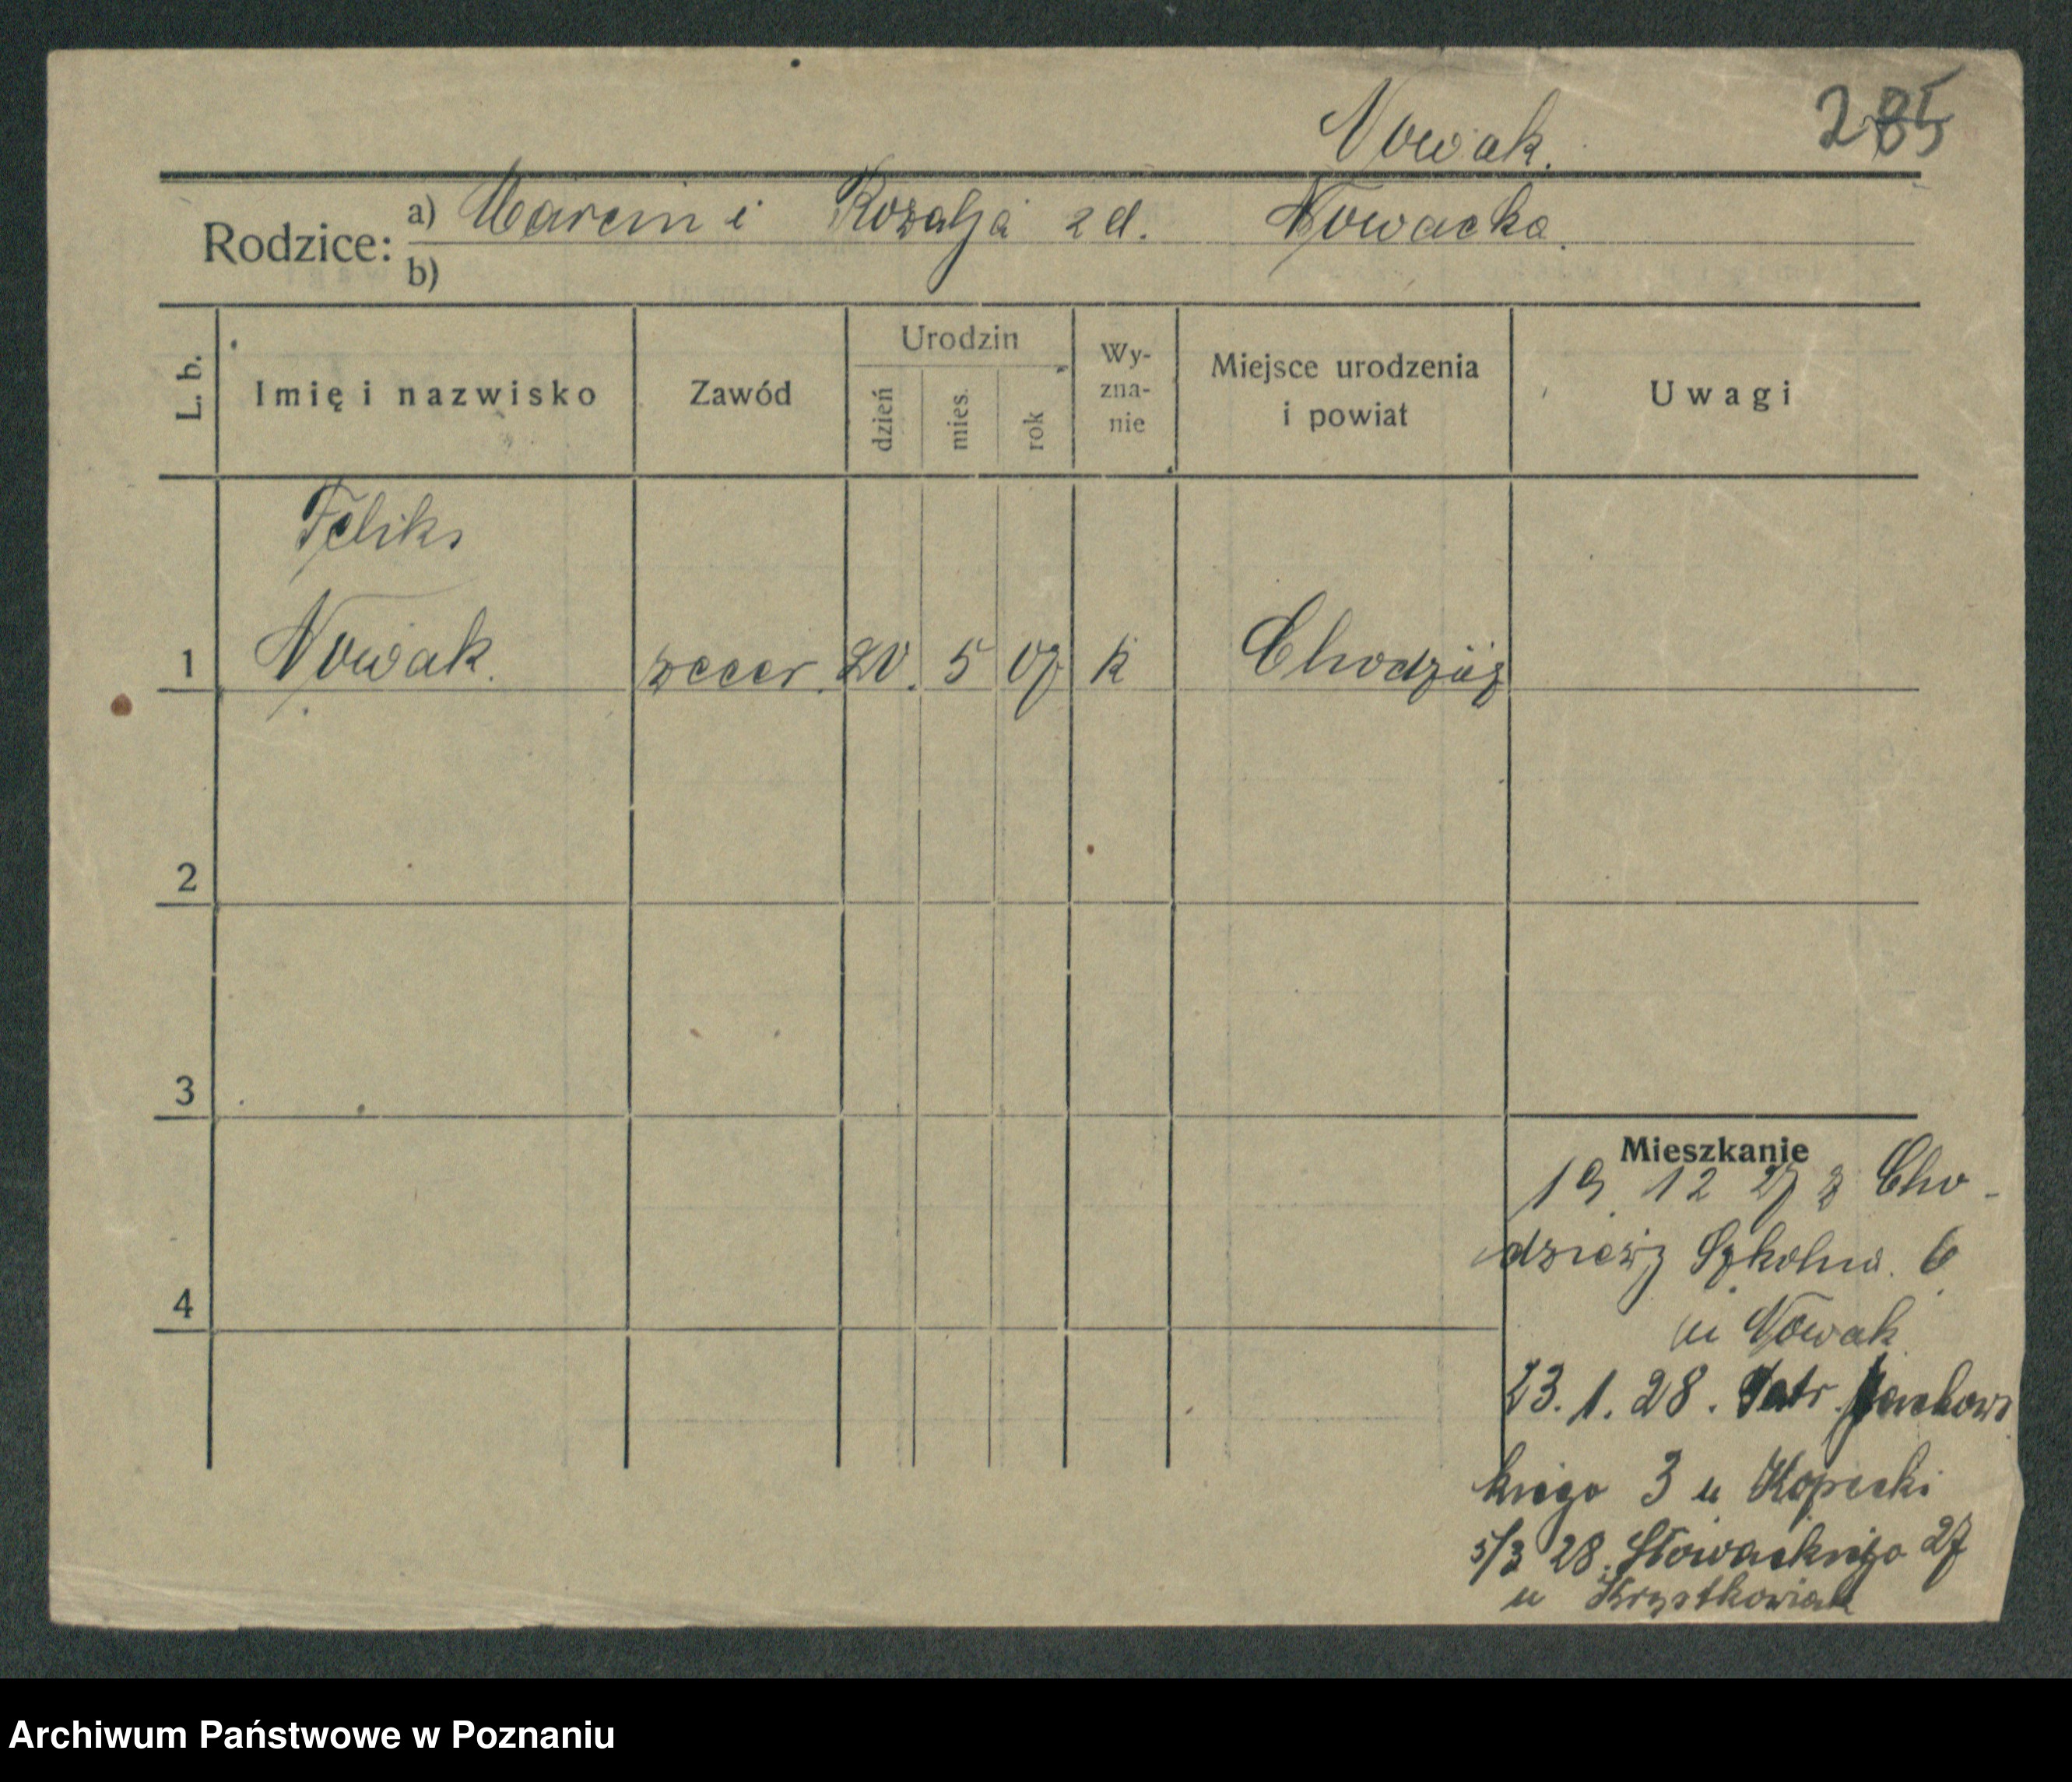 Nowak.
285
Rodzice: a) Marcin i Rozalja zd. Nowacka.
b)
L. b.
Imię i nazwisko
Zawód
Urodzin
dzień
mies.
rok
Wy-
zna-
nie
Miejsce urodzenia
i powiat
Uwagi
Feliks
1 Nowak. zecer. 20. 5 07 k Chodzież
2
3
4
Mieszkanie
19. 12 27 z Cho-
dzieży Szkolna. 6
u Nowak
23. 1. 28. Patr. Jackows
kiego 3 u Kopecki
5/3 28. Słowackiego 27
u Krystkowiak
Archiwum Państwowe w Poznaniu